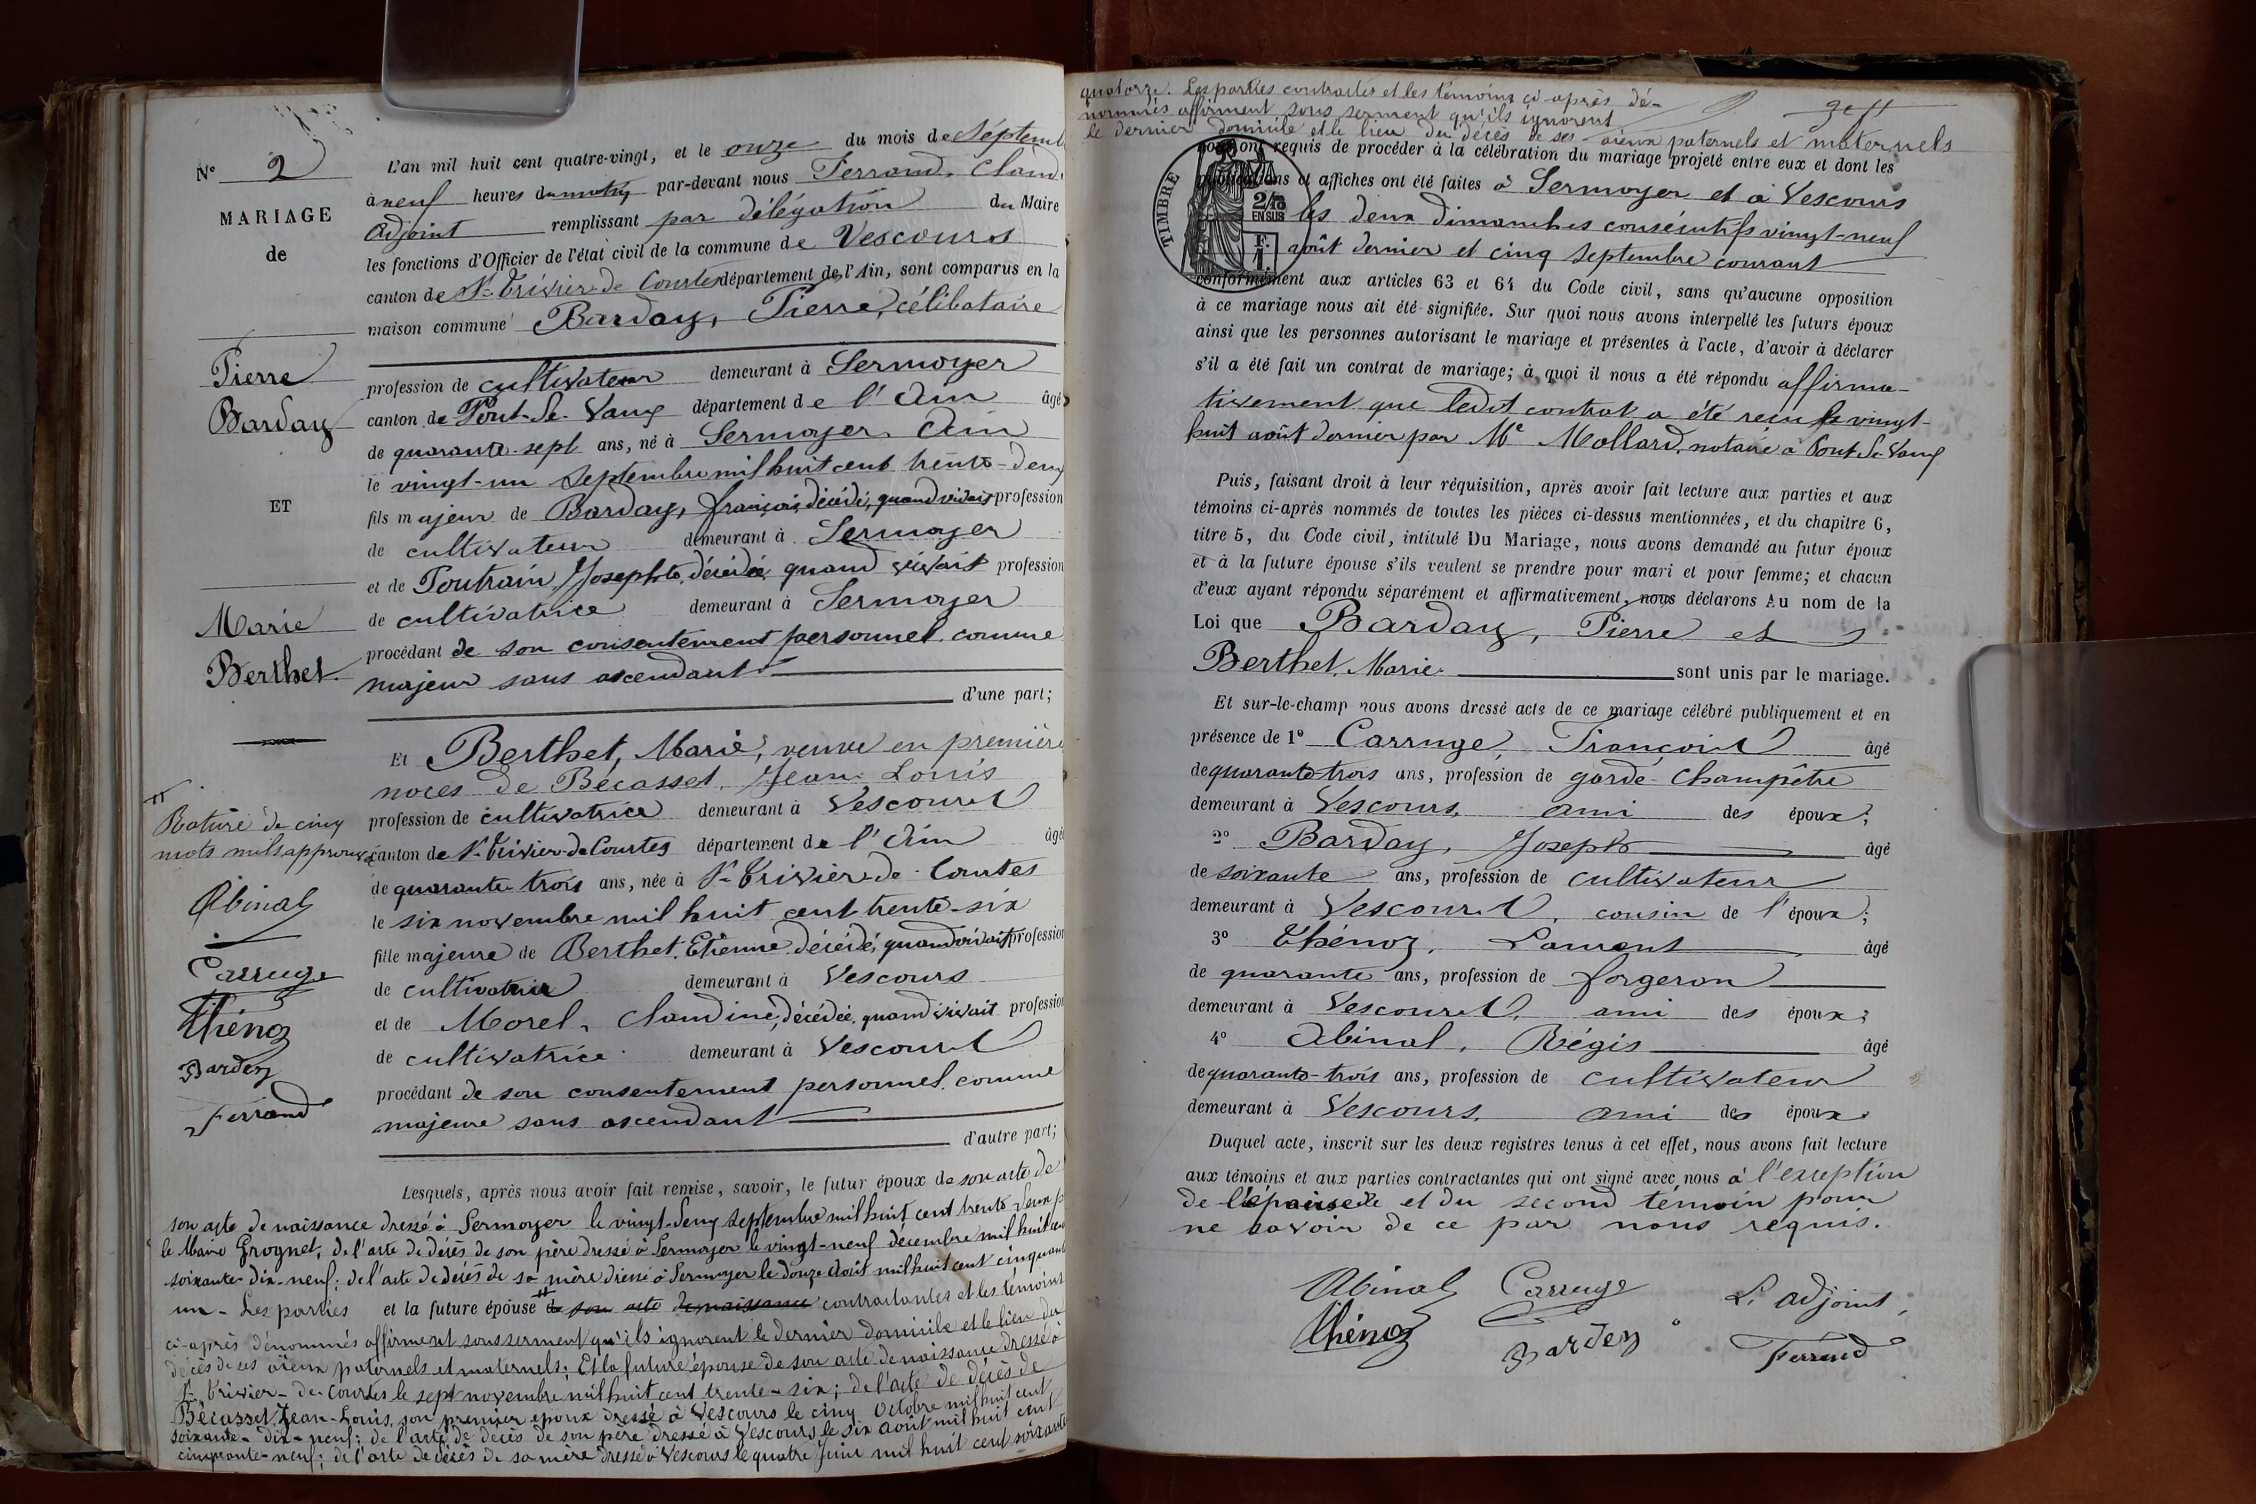 N° 2
MARIAGE
de
Pierre
Barday
ET
Marie
Berthet
Rature de cinq
mots nuls approuvée
Abinal
Carruge
Thénoz
Barday
Ferrand
L'an mil huit cent quatre-vingt, et le onze du mois de Septemb
à neuf heures du matin par-devant nous Ferrand, Claud
adjoint remplissant par délégation du Maire
les fonctions d'Officier de l'état civil de la commune de Vescours
canton de St-Trivier-de-Courtes département de l'Ain, sont comparus en la
maison commune Barday, Pierre, célibataire
profession de cultivateur demeurant à Sermoyer
canton de Pont-de-Vaux département de l'Ain âgé
de quarante-sept ans, né à Sermoyer, Ain
le vingt-un Septembre mil huit cent trente-deux
fils majeur de Barday, françois, décédé, quand vivait profession
de cultivateur demeurant à Sermoyer
et de Poutrain, Josephte, décédée, quand vivait profession
de cultivatrice demeurant à Sermoyer
procédant de son consentement personnel comme
majeur sans ascendants
d'une part;
Et Berthet, Marie, veuve en première
noces de Bécasset, Jean-Louis
profession de cultivatrice demeurant à Vescours
canton de St-Trivier-de-Courtes département de l'Ain âgé
de quarante-trois ans, née à St-Trivier-de-Courtes
le six novembre mil huit cent trente-six
fille majeure de Berthet, Etienne, décédé, quand vivait profession
de cultivateur demeurant à Vescours
et de Morel, Claudine, décédée, quand vivait profession
de cultivatrice demeurant à Vescours
procédant de son consentement personnel comme
majeure sans ascendant
d'autre part;
Lesquels, après nous avoir fait remise, savoir, le futur époux de son acte de
son acte de naissance dressé à Sermoyer le vingt-deux septembre mil huit cent trente deux p
le Maire Grognet, de l'acte de décès de son père dressé à Sermoyer le vingt-neuf décembre mil huit cent
soixante-dix-neuf; de l'acte de décès de sa mère dressé à Sermoyer le douze Août mil huit cent cinquante
un - Les parties et la future épouse de son acte de naissance contractantes et les témoins
ci-après dénommés affirment sous serment qu'ils ignorent le dernier domicile et le lieu du
décès de ses aïeux paternels et maternels; Et la future épouse de son acte de naissance dressé à
St-Trivier-de-Courtes le sept novembre mil huit cent trente-six; de l'acte de décès de
Bécasset, Jean-Louis, son premier époux dressé à Vescours le cinq Octobre mil huit cent
soixante-dix-neuf; de l'acte de décès de son père dressé à Vescours le six août mil huit cent
cinquante-neuf; de l'acte de décès de sa mère dressé à Vescours le quatre Juin mil huit cent soixante
quatorze. Les parties contractantes et les témoins ci-après dé-
nommés affirment sous serment qu'ils ignorent
le dernier domicile et le lieu du décès de ses aïeux paternels et maternels
nous ont requis de procéder à la célébration du mariage projeté entre eux et dont les
publications et affiches ont été faites à Sermoyer et à Vescours
TIMBRE
2/10
EN SUS
F.
1.
les deux dimanches consécutifs vingt-neuf
août dernier et cinq septembre courant
conformément aux articles 63 et 64 du Code civil, sans qu'aucune opposition
à ce mariage nous ait été signifiée. Sur quoi nous avons interpellé les futurs époux
ainsi que les personnes autorisant le mariage et présentes à l'acte, d'avoir à déclarer
s'il a été fait un contrat de mariage; à quoi il nous a été répondu affirma-
tivement que ledit contrat a été reçu le vingt-
huit août dernier par Me Mollard, notaire à Pont-de-Vaux
Puis, faisant droit à leur réquisition, après avoir fait lecture aux parties et aux
témoins ci-après nommés de toutes les pièces ci-dessus mentionnées, et du chapitre 6,
titre 5, du Code civil, intitulé Du Mariage, nous avons demandé au futur époux
et à la future épouse s'ils veulent se prendre pour mari et pour femme; et chacun
d'eux ayant répondu séparément et affirmativement, nous déclarons Au nom de la
Loi que Barday, Pierre et
Berthet, Marie sont unis par le mariage.
Et sur-le-champ nous avons dressé acte de ce mariage célébré publiquement et en
présence de 1° Carruge, François âgé
de quarante-trois ans, profession de garde-champêtre
demeurant à Vescours, ami des époux;
2° Barday, Joseph âgé
de soixante ans, profession de cultivateur
demeurant à Vescours, cousin de l'époux;
3° Thénoz, Laurent âgé
de quarante ans, profession de forgeron
demeurant à Vescours, ami des époux;
4° Abinal, Régis âgé
de quarante-trois ans, profession de cultivateur
demeurant à Vescours, ami des époux
Duquel acte, inscrit sur les deux registres tenus à cet effet, nous avons fait lecture
aux témoins et aux parties contractantes qui ont signé avec nous à l'exception
de l'épouse et du second témoin pour
ne savoir de ce par nous requis.
Abinal Carruge L'adjoint,
Thénoz Barday Ferrand